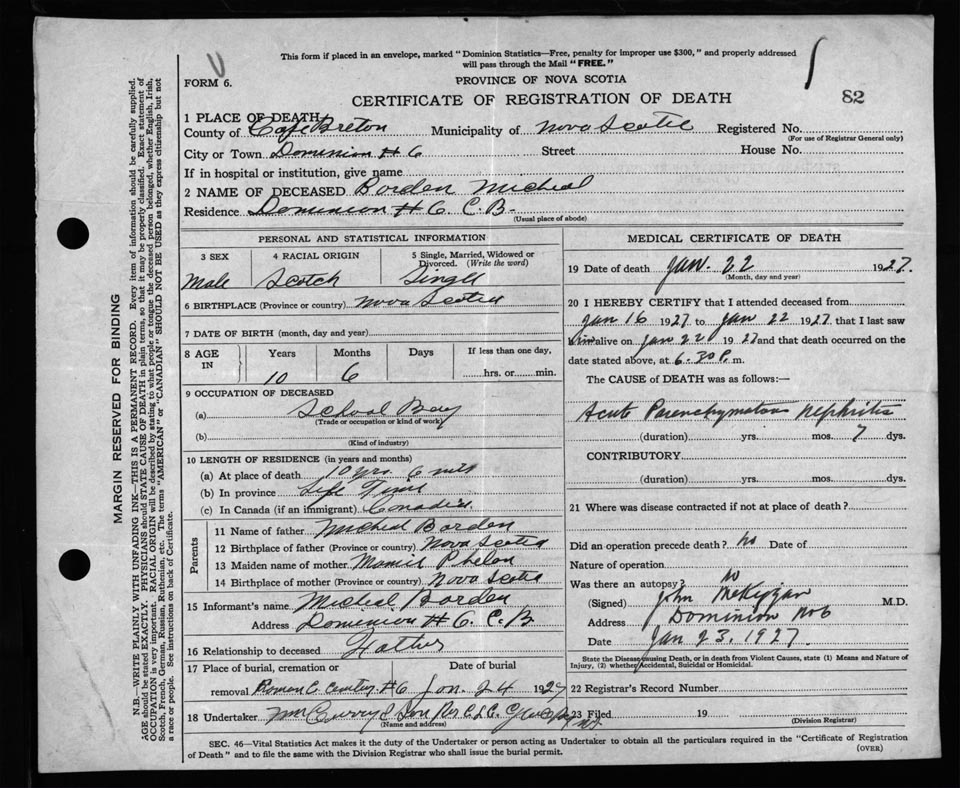 This form if placed in an envelope, marked "Dominion Statistics—Free, penalty for improper use $300," and properly addressed
will pass through the Mail "FREE."
FORM 6.
PROVINCE OF NOVA SCOTIA
CERTIFICATE OF REGISTRATION OF DEATH
82
1 PLACE OF DEATH
County of Cape Breton Municipality of Nova Scotia Registered No.
(For use of Registrar General only)
City or Town Dominion # 6 Street House No.
If in hospital or institution, give name
2 NAME OF DECEASED Borden Micheal
Residence Dominion # 6 C.B.
(Usual place of abode)
PERSONAL AND STATISTICAL INFORMATION
3 SEX 4 RACIAL ORIGIN 5 Single, Married, Widowed or Divorced. (Write the word)
Male Scotch Single
6 BIRTHPLACE (Province or country) Nova Scotia
7 DATE OF BIRTH (month, day and year)
8 AGE IN Years Months Days If less than one day,
10 6 hrs. or min.
9 OCCUPATION OF DECEASED
(a) School Boy
(Trade or occupation or kind of work)
(b)
(Kind of industry)
10 LENGTH OF RESIDENCE (in years and months)
(a) At place of death 10 yrs. 6
(b) In province Life Time
(c) In Canada (if an immigrant)
Parents
11 Name of father Micheal Borden
12 Birthplace of father (Province or country) Nova Scotia
13 Maiden name of mother Mamie Phelan
14 Birthplace of mother (Province or country) Nova Scotia
15 Informant's name Micheal Borden
Address Dominion # 6. C.B
16 Relationship to deceased Father
17 Place of burial, cremation or Date of burial
removal Roman C. #6 Jan. 24 1927
18 Undertaker Curry & Son
(Name and address)
MEDICAL CERTIFICATE OF DEATH
19 Date of death Jan. 22 1927.
(Month, day and year)
20 I HEREBY CERTIFY that I attended deceased from
Jan 16 1927 to Jan 22 1927 that I last saw
him alive on Jan 22 1927 and that death occurred on the
date stated above, at 6.30 P. m.
The CAUSE of DEATH was as follows:—
Acute Parenchymatous Nephritis
(duration) yrs. mos. 7 dys.
CONTRIBUTORY
(duration) yrs. mos. dys.
21 Where was disease contracted if not at place of death?
Did an operation precede death? No Date of
Nature of operation
Was there an autopsy? No
(Signed) John M.D.
Address Dominion No 6
Date Jan 23. 1927
State the Disease causing Death, or in death from Violent Causes, state (1) Means and Nature of
Injury, (2) whether Accidental, Suicidal or Homicidal.
22 Registrar's Record Number
23 Filed 19
(Division Registrar)
SEC. 46—Vital Statistics Act makes it the duty of the Undertaker or person acting as Undertaker to obtain all the particulars required in the "Certificate of Registration
of Death" and to file the same with the Division Registrar who shall issue the burial permit.
(OVER)
MARGIN RESERVED FOR BINDING
N.B.—WRITE PLAINLY WITH UNFADING INK—THIS IS A PERMANENT RECORD. Every item of information should be carefully supplied.
AGE should be stated EXACTLY. PHYSICIANS should STATE CAUSE OF DEATH in plain terms, so that it may be properly classified. Exact statement of
OCCUPATION is very important. RACIAL ORIGIN will be described by stating to what people or tongue the deceased person belonged, whether English, Irish,
Scotch, French, German, Russian, Ruthenian, etc. The terms "AMERICAN" or "CANADIAN" SHOULD NOT BE USED as they express citizenship but not
a race or people. See instructions on back of Certificate.